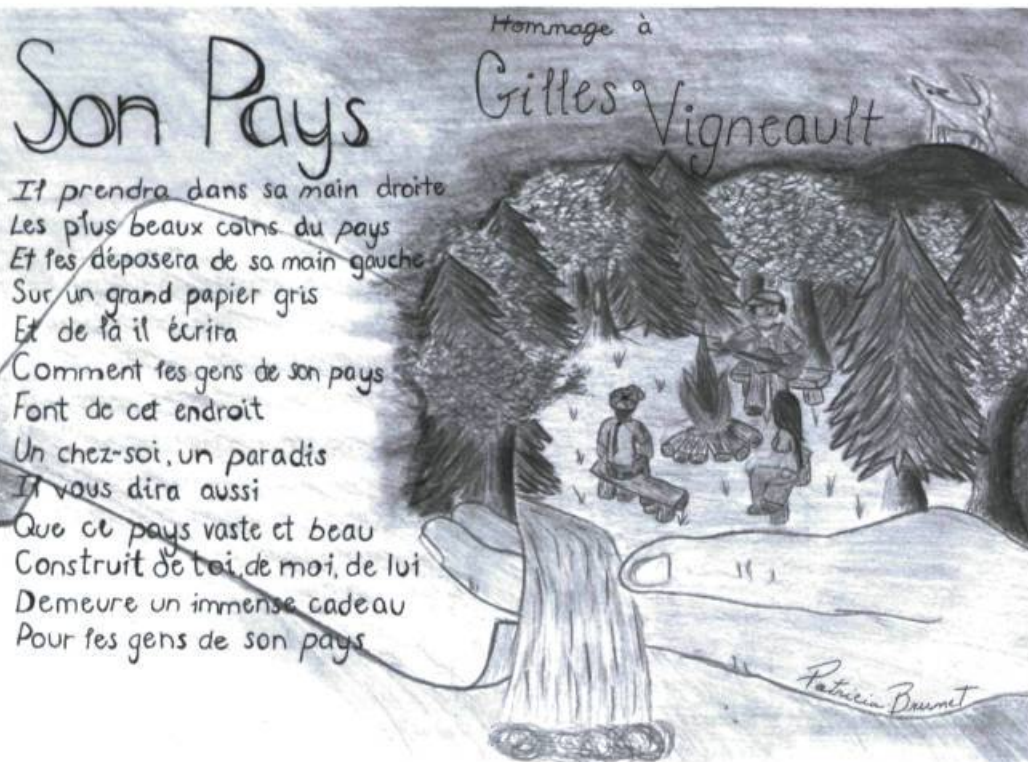 Son Pays
Hommage à
Gilles Vigneault
Il prendra dans sa main droite
Les plus beaux coins du pays
Et les déposera de sa main gauche
Sur un grand papier gris
Et de là il écrira
Comment les gens de son pays
Font de cet endroit
Un chez-soi, un paradis
Il vous dira aussi
Que ce pays vaste et beau
Construit de toi, de moi, de lui
Demeure un immense cadeau
Pour les gens de son pays
Patricia Brunet